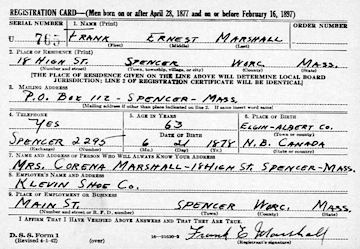 REGISTRATION CARD—(Men born on or after April 28, 1877 and on or before February 16, 1897)
SERIAL NUMBER 1. NAME (Print) ORDER NUMBER
U 765 FRANK ERNEST MARSHALL
(First) (Middle) (Last)
2. PLACE OF RESIDENCE (Print)
18 HIGH ST. SPENCER WORC. MASS.
(Number and street) (Town, township, village, or city) (County) (State)
[THE PLACE OF RESIDENCE GIVEN ON THE LINE ABOVE WILL DETERMINE LOCAL BOARD
JURISDICTION; LINE 2 OF REGISTRATION CERTIFICATE WILL BE IDENTICAL]
3. MAILING ADDRESS
P.O. BOX 112 - SPENCER - MASS.
[Mailing address if other than place indicated on line 2. If same insert word same]
4. TELEPHONE 5. AGE IN YEARS 6. PLACE OF BIRTH
YES 63 ELGIN-ALBERT CO.
DATE OF BIRTH (Town or county)
SPENCER 2295 6 21 1878 N.B. CANADA
(Exchange) (Number) (Mo.) (Day) (Yr.) (State or country)
7. NAME AND ADDRESS OF PERSON WHO WILL ALWAYS KNOW YOUR ADDRESS
MRS. CORENA MARSHALL - 18 HIGH ST. SPENCER - MASS.
8. EMPLOYER'S NAME AND ADDRESS
KLEVIN SHOE CO.
9. PLACE OF EMPLOYMENT OR BUSINESS
MAIN ST. SPENCER WORC. MASS.
(Number and street or R. F. D. number) (Town) (County) (State)
I AFFIRM THAT I HAVE VERIFIED ABOVE ANSWERS AND THAT THEY ARE TRUE.
D. S. S. Form 1
(Revised 4-1-42) (over) Frank E. Marshall
(Registrant's signature)